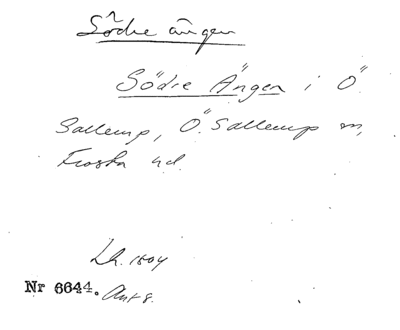 Södre ängen
Södre Ängen i Ö
Sallerup, Ö. Sallerup sn,
Frosta hd.
Lh. 1804
Nr 6644. Akt 8.